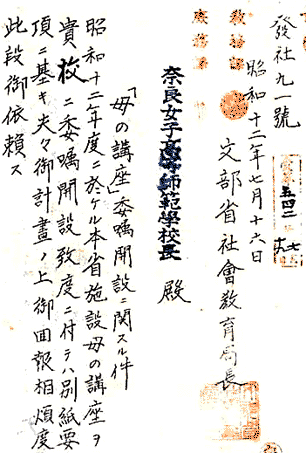 發社九一號
昭和十二年七月十六日
文部省社會教育局長
奈良女子高等師範學校長 殿
「母の講座」委囑開設ニ関スル件
昭和十二年度ニ於ケル本省施設母の講座ヲ
貴校ニ委囑開設致度ニ付テハ別紙要
項ニ基キ夫々御計畫ノ上御回報相煩度
此段御依頼ス